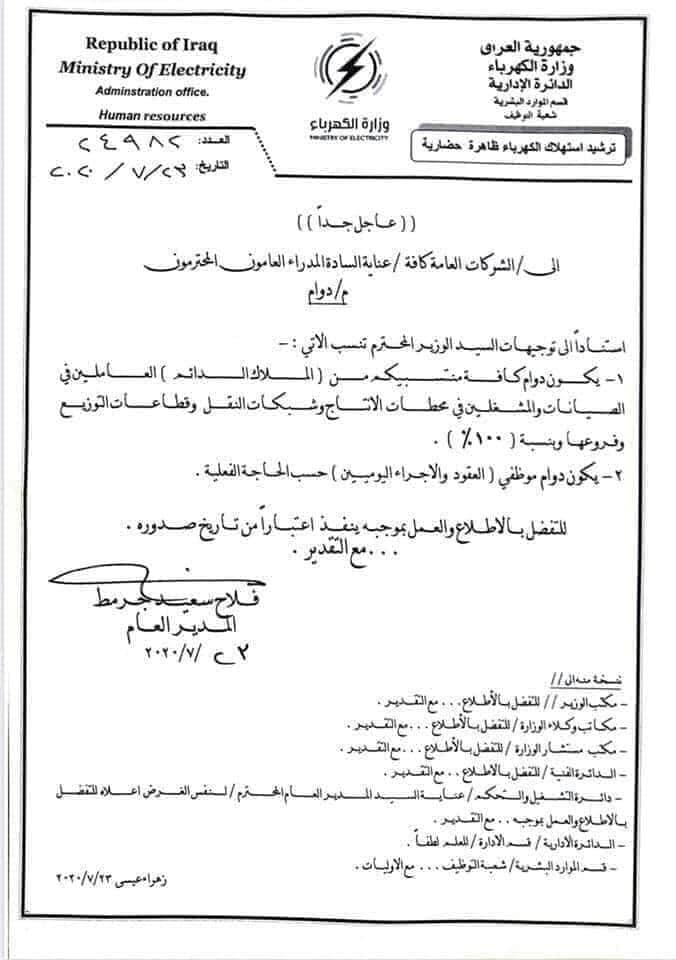 Republic of Iraq
Ministry Of Electricity
Adminstration office.
Human resources
وزارة الكهرباء
MINISTRY OF ELECTRICITY
جمهورية العراق
وزارة الكهرباء
الدائرة الإدارية
قسم الموارد البشرية
شعبة التوظيف
ترشيد استهلاك الكهرباء ظاهرة حضارية
العدد: ٢٤٩٨٢
التاريخ: ٢٣ / ٧ / ٢٠٢٠
(( عاجل جداً ))
الى / الشركات العامة كافة / عناية السادة المدراء العامون المحترمون
م/ دوام
استناداً الى توجيهات السيد الوزير المحترم تنسب الاتي : –
١- يكون دوام كافة منتسبيكم من ( الملاك الدائم ) العاملين في
الصيانات والمشغلين في محطات الانتاج وشبكات النقل وقطاعات التوزيع
وفروعها وبنسبة ( ١٠٠٪ ) .
٢- يكون دوام موظفي ( العقود والاجراء اليوميين ) حسب الحاجة الفعلية .
للتفضل بالاطلاع والعمل بموجبه ينفذ اعتباراً من تاريخ صدوره .
... مع التقدير .
فلاح سعيد جرمط
المدير العام
٢٣ /٢٠٢٠/٧
نسخة منه الى //
- مكتب الوزير // للتفضل بالأطلاع ... مع التقدير .
- مكاتب وكلاء الوزارة / للتفضل بالأطلاع ... مع التقدير .
- مكتب مستشار الوزارة / للتفضل بالأطلاع ... مع التقدير .
- الدائرة الفنية / للتفضل بالأطلاع .. مع التقدير .
- دائرة التشغيل والتحكم / عناية السيد المدير العام المحترم / لنفس الغرض اعلاه للتفضل
بالاطلاع والعمل بموجبه .. مع التقدير .
- الدائرة الادارية / قسم الادارة / للعلم لطفاً .
- قسم الموارد البشرية / شعبة التوظيف ... مع الاوليات .
زهراء عيسى ٢٠٢٠/٧/٢٣